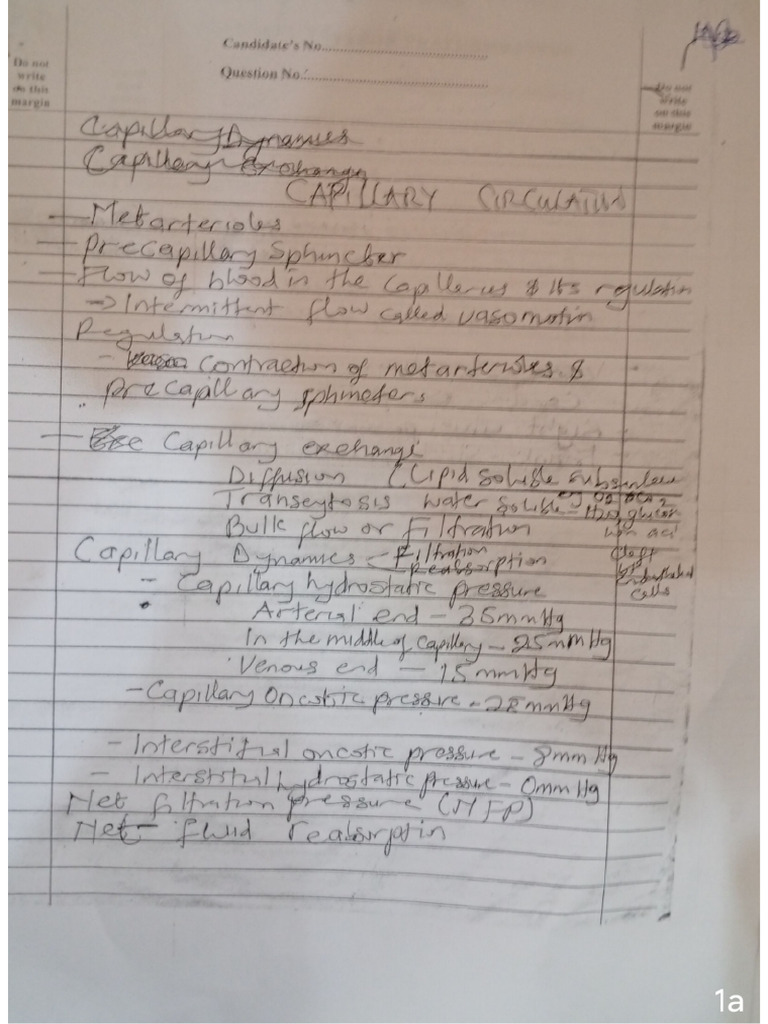 Candidate's No.
Question No.
Do not
write
on this
margin
Do not
write
on this
margin
Capillary Dynamics
Capillary Exchange
CAPILLARY CIRCULATION
- Metarterioles
- Precapillary Sphincter
- Flow of blood in the Capillaries & its regulation
-> Intermittent flow called vasomotion
Regulation
- contraction of metarterioles &
precapillary sphincters
- Capillary exchange
Diffusion (Lipid soluble substances
eg O2 CO2
Transcytosis water soluble - H2O glucose
Bulk flow or Filtration
Capillary Dynamics - Filtration
- Reabsorption
cleft
Endothelial
cells
- Capillary hydrostatic pressure
Arterial end - 35mmHg
In the middle of Capillary - 25mmHg
Venous end - 15mmHg
- Capillary Oncotic pressure - 28mmHg
- Interstitial oncotic pressure - 8mmHg
- Interstitial hydrostatic pressure - 0mmHg
Net filtration pressure (NFP)
Net - fluid reabsorption
1a